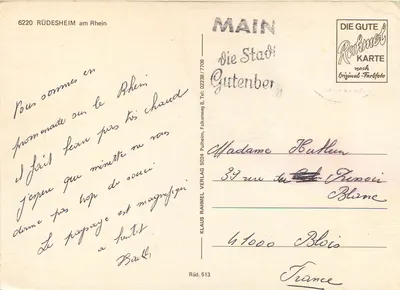 6220 RÜDESHEIM am Rhein
Nous sommes en
promenade sur le Rhein
il fait beau pas très chaud
j'espère que minette ne vous
donne pas trop de souci.
Le paysage est magnifique
a bientot
KLAUS RAHMEL VERLAG 5024 Pulheim, Falkenweg 8, Tel.: 02238/7708
Rüd. 513
MAIN
die Stadt
Gutenberg
DIE GUTE
Rahmel
KARTE
nach
Original-Farbfoto
Madame
39 rue Renoir
Blanc
41000 Blois
France